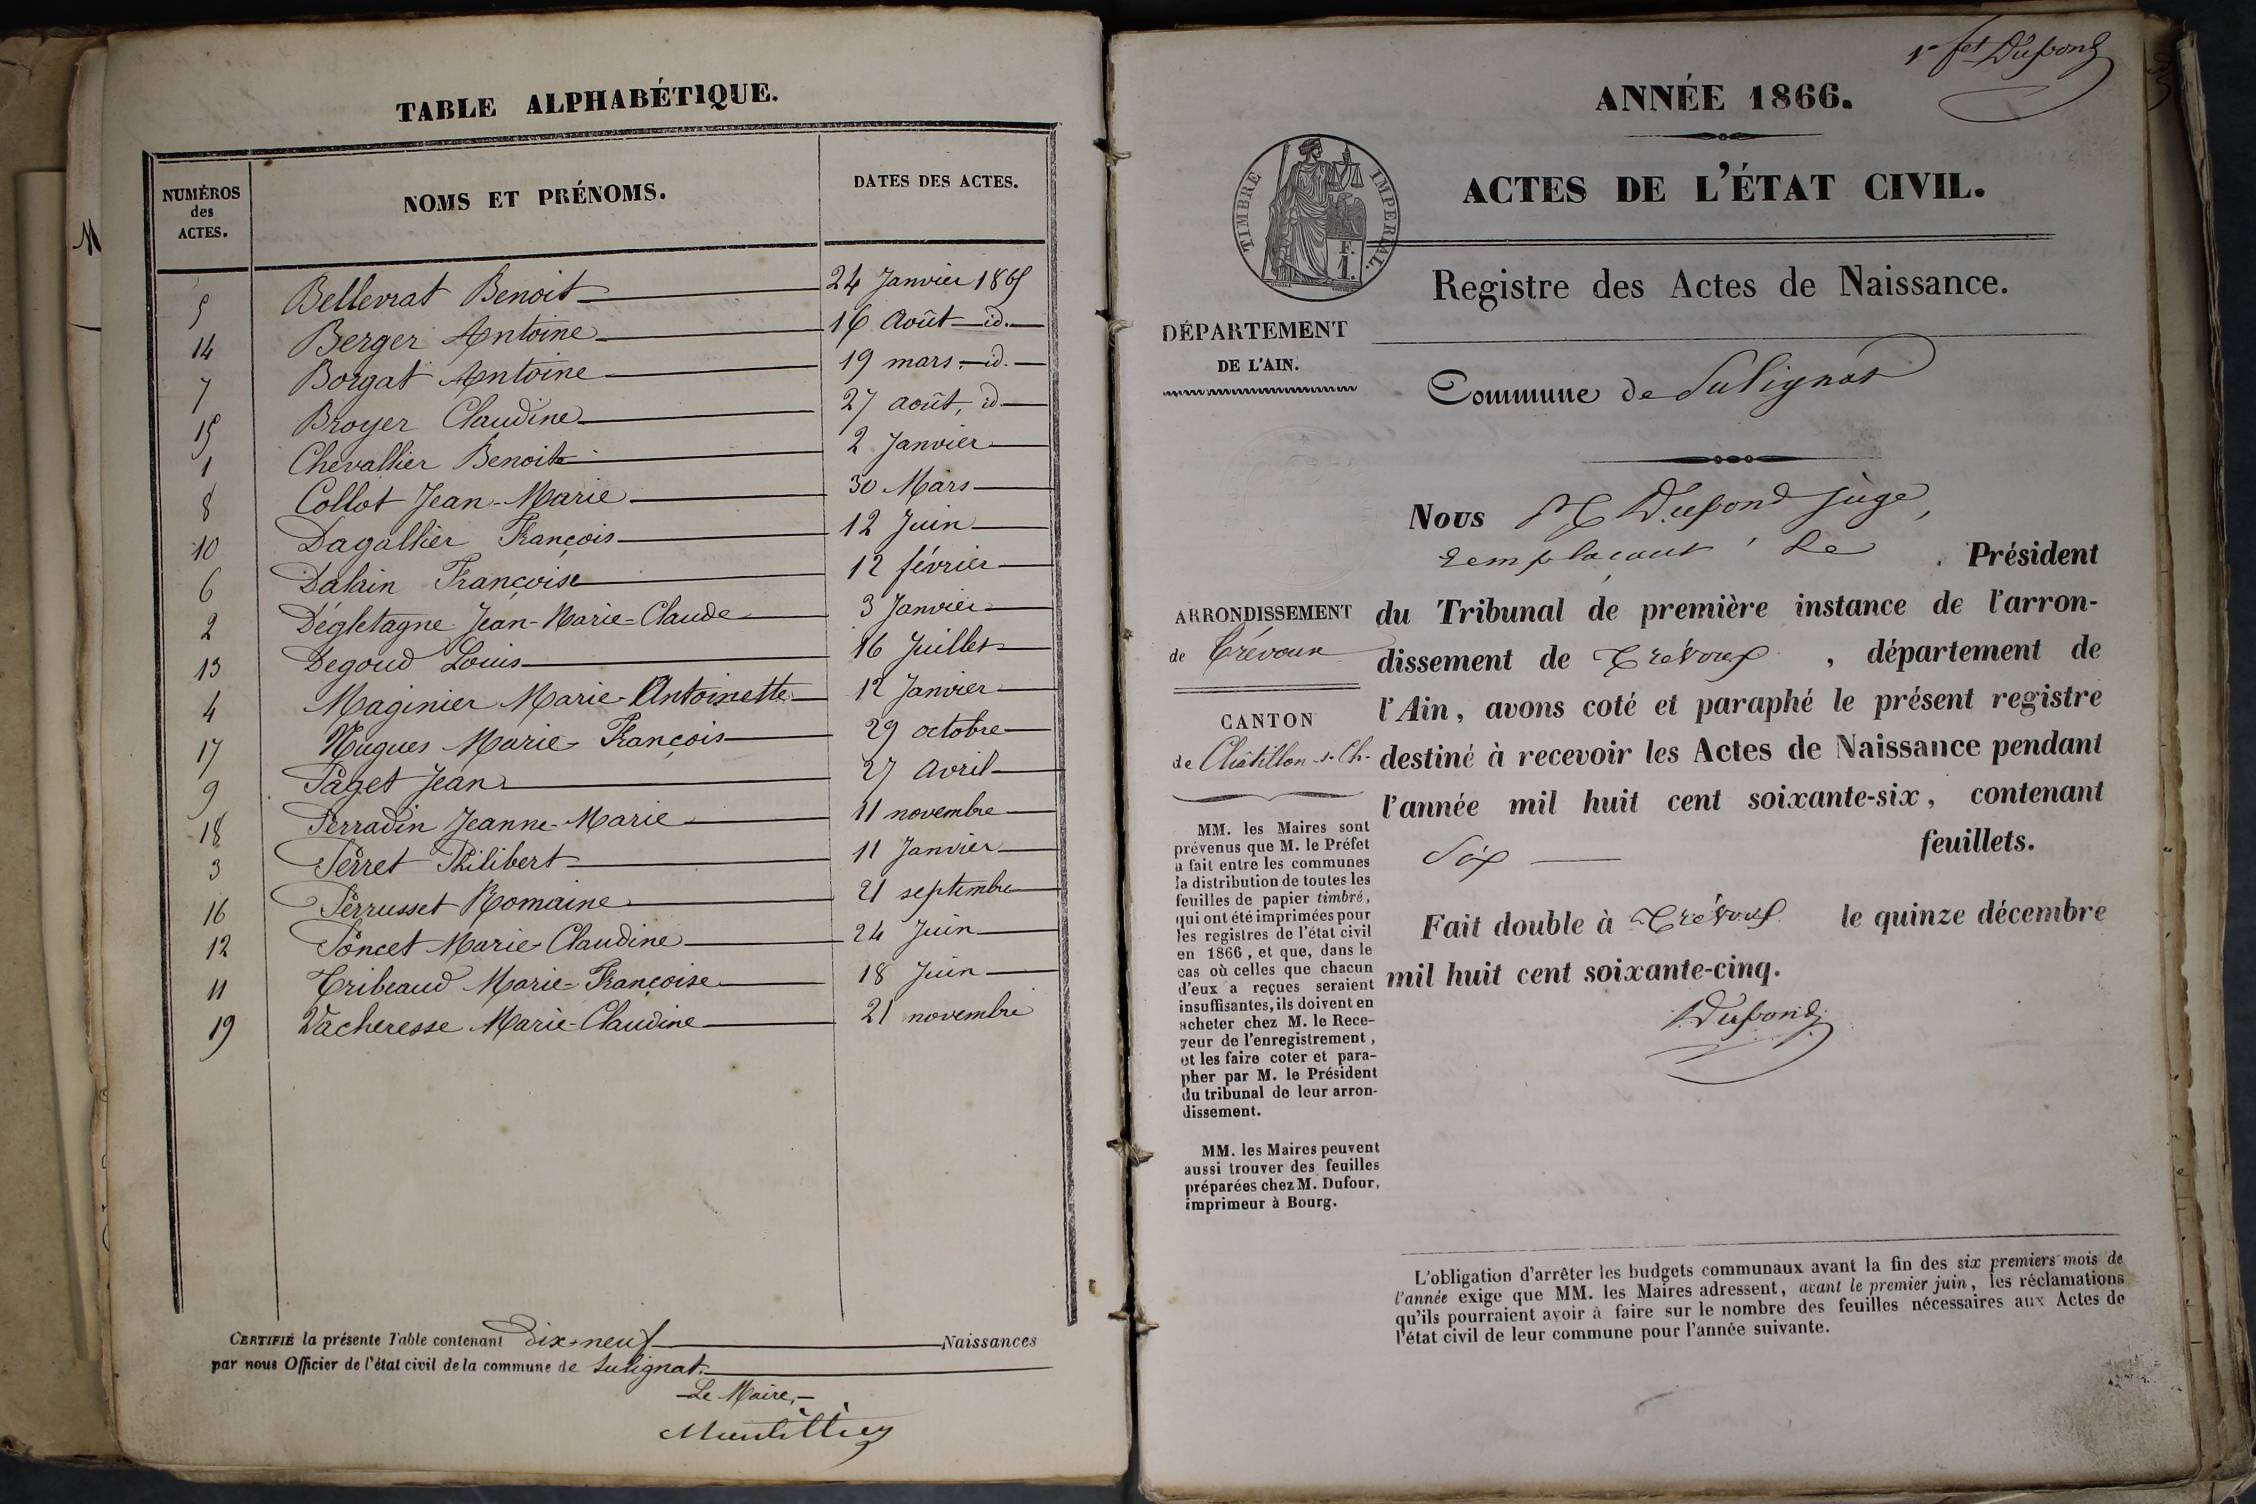 TABLE ALPHABÉTIQUE.
NUMÉROS des ACTES. NOMS ET PRÉNOMS. DATES DES ACTES.
5 Bellevrat Benoit 24 Janvier 1865
14 Berger Antoine 16 Août id.
7 Borgat Antoine 19 mars id.
15 Broyer Claudine 27 août, id
1 Chevallier Benoite 2 Janvier
8 Collot Jean-Marie 30 Mars
10 Dagallier François 12 Juin
6 Dalain Françoise 12 février
2 Dégletagne Jean-Marie-Claude 3 Janvier
13 Degoud Louis 16 Juillet
4 Maginier Marie-Antoinette 12 Janvier
17 Nugues Marie-François 29 octobre
9 Paget Jean 27 Avril
18 Perradin Jeanne-Marie 11 novembre
3 Perret Philibert 11 Janvier
16 Perrusset Romaine 21 septembre
12 Poncet Marie-Claudine 24 Juin
11 Tribeaud Marie-Françoise 18 Juin
19 Vacheresse Marie-Claudine 21 novembre
CERTIFIÉ la présente Table contenant Dix-neuf Naissances
par nous Officier de l'état civil de la commune de Sulignat.
Le Maire,
1er fet Dupond
ANNÉE 1866.
TIMBRE IMPERIAL.
F.
1.
ACTES DE L'ÉTAT CIVIL.
Registre des Actes de Naissance.
DÉPARTEMENT
DE L'AIN.
Commune de Sulignat
Nous M Dupond juge,
remplaçant le Président
ARRONDISSEMENT
de Trévoux
CANTON
de Châtillon-s-Ch.
du Tribunal de première instance de l'arron-
dissement de Trévoux, département de
l'Ain, avons coté et paraphé le présent registre
destiné à recevoir les Actes de Naissance pendant
l'année mil huit cent soixante-six, contenant
Six feuillets.
Fait double à Trévoux le quinze décembre
mil huit cent soixante-cinq.
Dupond
MM. les Maires sont
prévenus que M. le Préfet
a fait entre les communes
la distribution de toutes les
feuilles de papier timbré,
qui ont été imprimées pour
les registres de l'état civil
en 1866, et que, dans le
cas où celles que chacun
d'eux a reçues seraient
insuffisantes, ils doivent en
acheter chez M. le Rece-
veur de l'enregistrement,
et les faire coter et para-
pher par M. le Président
du tribunal de leur arron-
dissement.
MM. les Maires peuvent
aussi trouver des feuilles
préparées chez M. Dufour,
imprimeur à Bourg.
L'obligation d'arrêter les budgets communaux avant la fin des six premiers mois de
l'année exige que MM. les Maires adressent, avant le premier juin, les réclamations
qu'ils pourraient avoir à faire sur le nombre des feuilles nécessaires aux Actes de
l'état civil de leur commune pour l'année suivante.